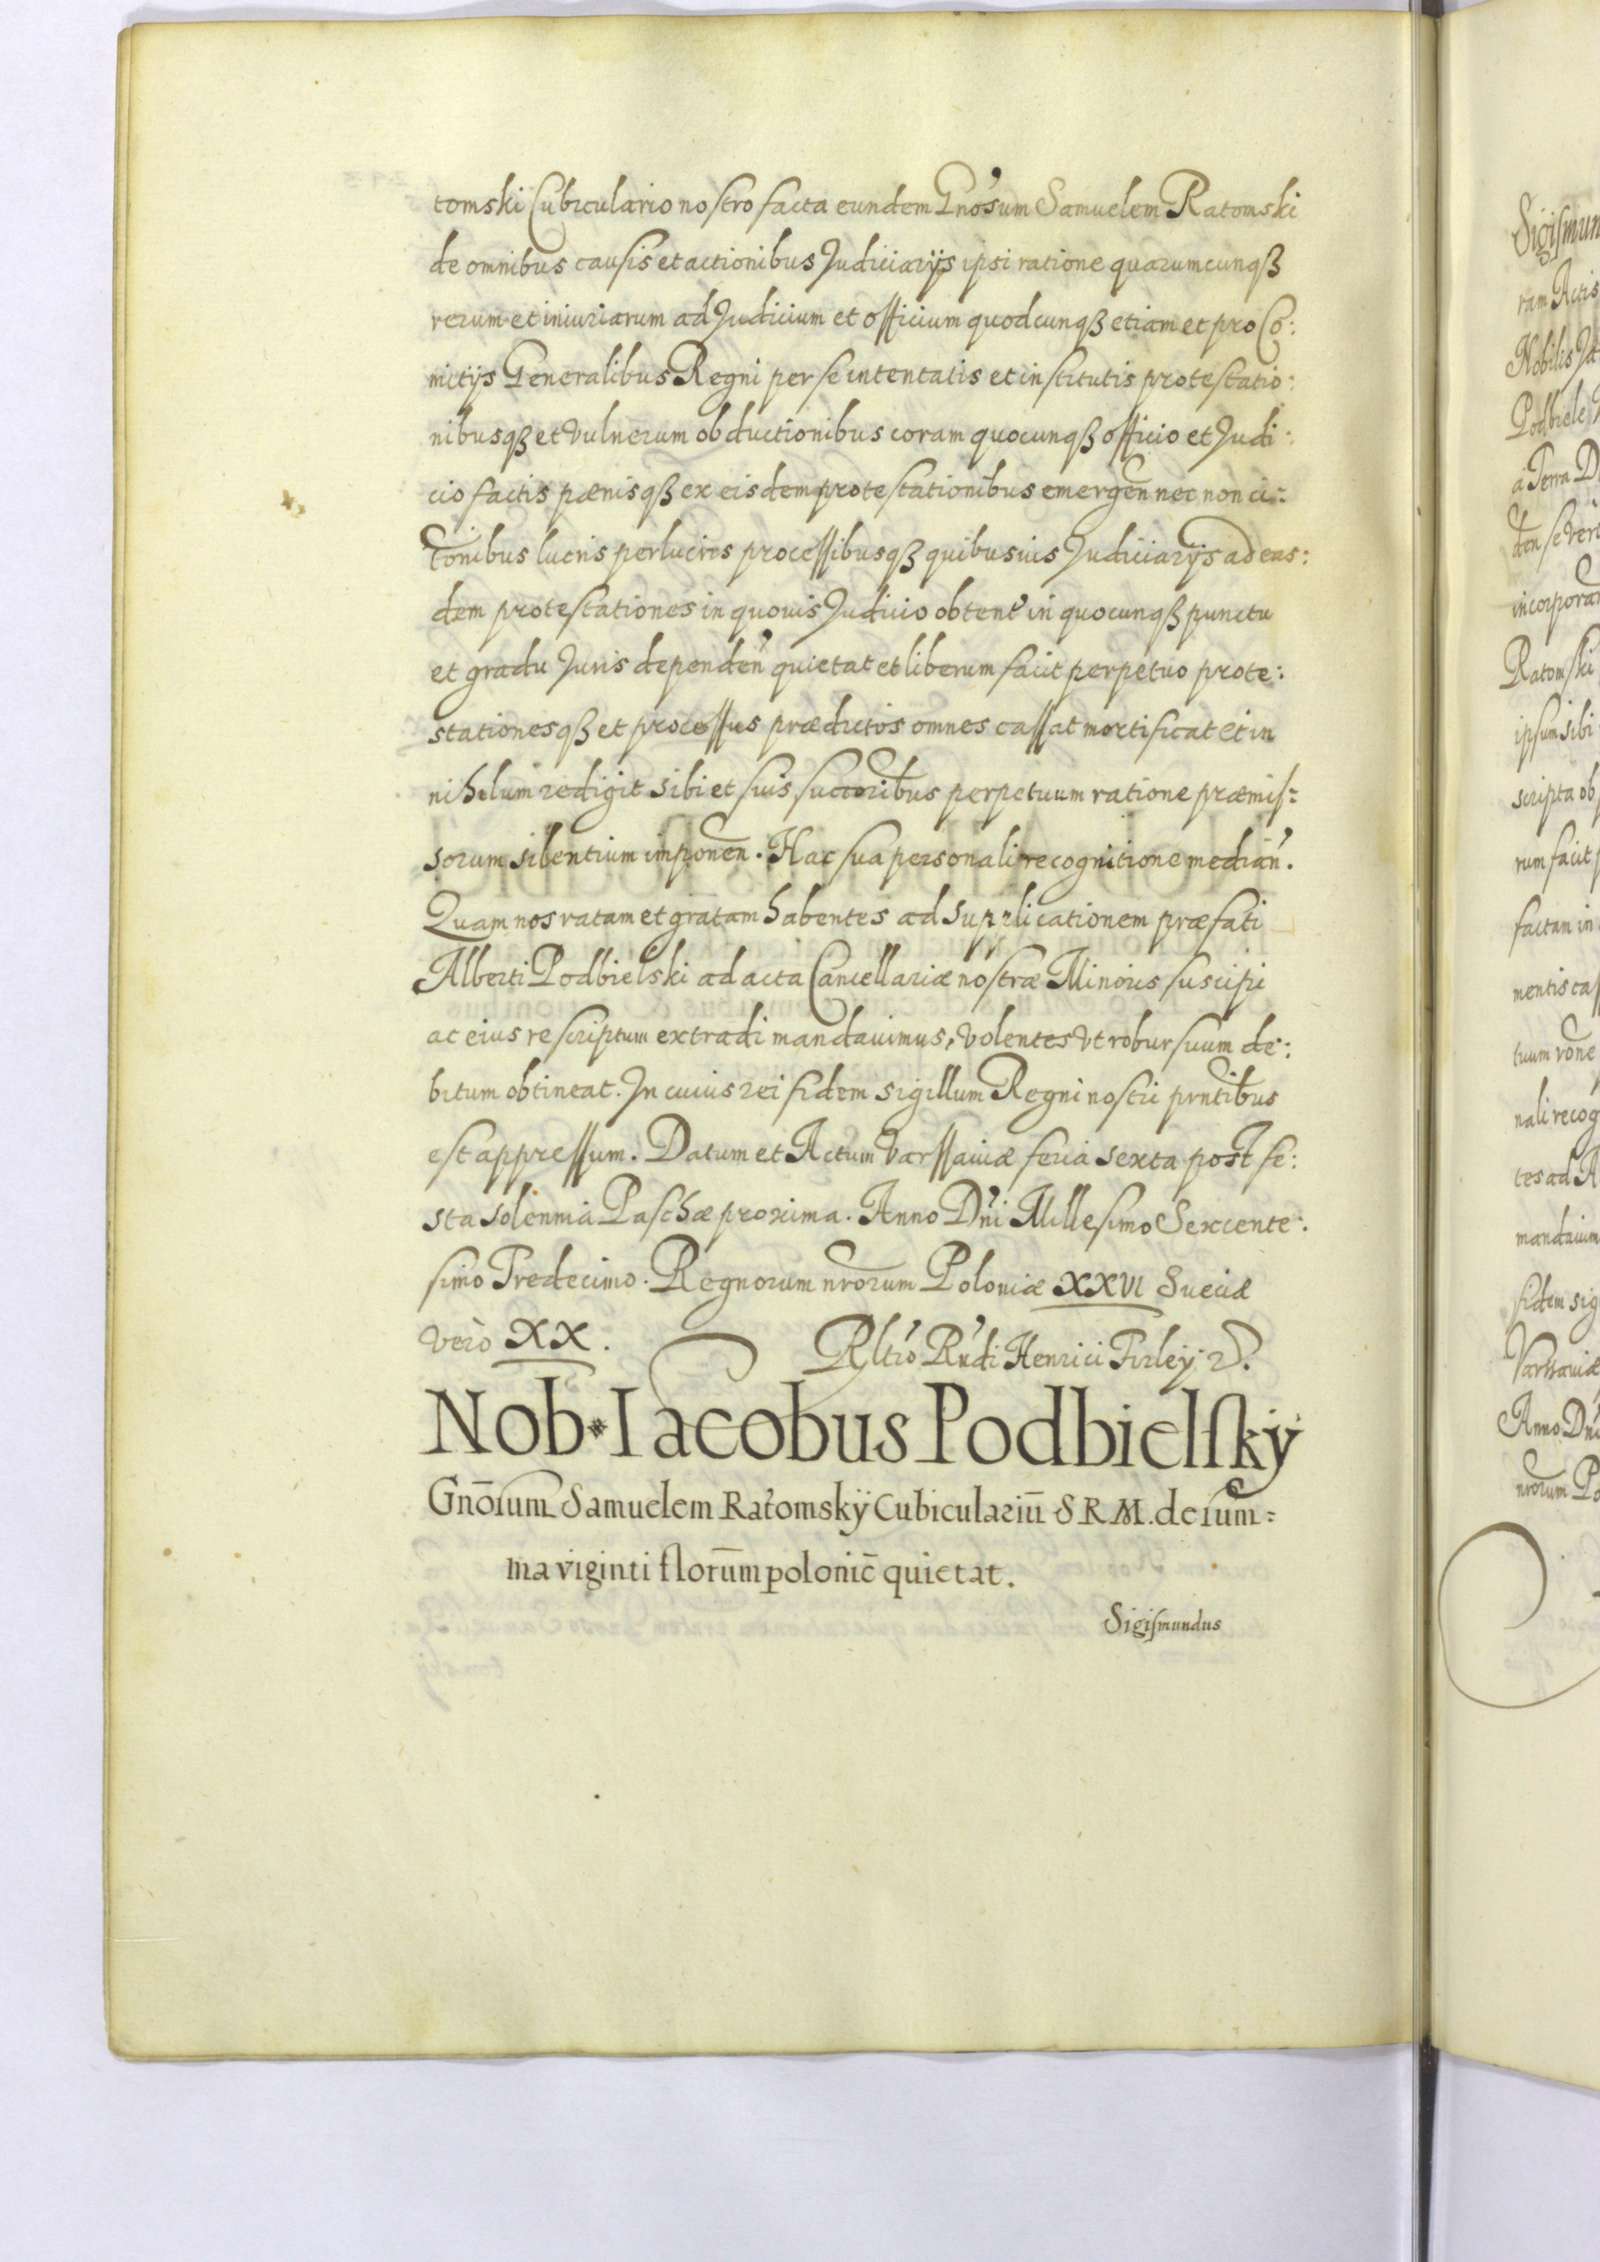 tomski Cubiculario nostro facta eundem Gnosum Samuelem Ratomski
de omnibus causis et actionibus Judiciarijs ipsi ratione quarumcunqꝫ
rerum et iniuriarum ad Judicium et officium quodcunqꝫ etiam et pro Co:
mitijs Generalibus Regni per se intentatis et institutis protestatio:
nibusqꝫ et vulnerum obductionibus coram quocunqꝫ officio et Judi:
cio factis pænisqꝫ ex eisdem protestationibus emergen̄ nec non ci:
tōnibus lucris perlucris processibusqꝫ quibusuis Judiciarijs ad eas:
dem protestationes in quouis Judicio obten' in quocunqꝫ punctu
et gradu Juris dependen' quietat et liberum facit perpetuo prote:
stationesqꝫ et processus prædictos omnes cassat mortificat et in
nihilum redigit sibi et suis succoribus perpetuum ratione præmis=
sorum silentium imponen̄. Hac sua personali recognitione median'.
Quam nos ratam et gratam habentes ad supplicationem præfati
Alberti Podbielski ad acta Cancellariæ nostræ Minoris suscipi
ac eius rescriptum extradi mandauimus, volentes vt robur suum de:
bitum obtineat. In cuius rei fidem sigillum Regni nostri prntibus
est appressum. Datum et Actum Varssauiæ feria sexta post fe:
sta solennia Paschæ proxima. Anno Dn'i Millesimo Sexcente:
simo Tredecimo. Regnorum nrorum Poloniæ XXVI Sueciæ
verò XX.
Rltio R'ndi Henrici Firley
Nob. Iacobus Podbielsky
Gnōsum Samuelem Ratomskÿ Cubiculariū S R M. de sum=
ma viginti florum polonic̄ quietat.
Sigismundus
Sigismun
ram Actis
Nobilis Ja
Podbiele
à Terra D
incorpora
Ratomski
ipsum sibi
scripta ob
rum facit
factam in
mentis cas
tuum rōne
nali recog
tes ad A
mandauim
fidem sig
Varsauiæ
Anno Dn'i
nrorum Po